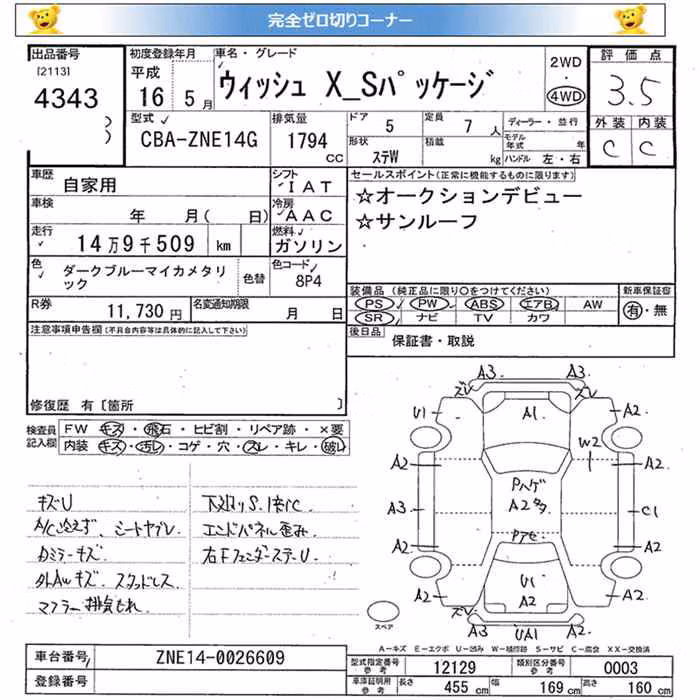 完全ゼロ切りコーナー
出品番号
[2113]
4343
初度登録年月
平成
16 5月
車名・グレード
ウィッシュ X_Sパッケージ
2WD
・
4WD
評価点
3.5
型式
CBA-ZNE14G
排気量
1794
CC
ドア
5
定員
7人
形状
ステW
積載
kg
ディーラー・並行
モデル年式 年
ハンドル 左・右
外装 内装
C C
車歴
自家用
シフト
IAT
車検
年 月( 日)
冷房
AAC
走行
14万9千509 km
燃料
ガソリン
色
ダークブルーマイカメタリック
色替
色コード
8P4
R券
11,730円
名変通知期限
月 日
セールスポイント(正常に機能するものに限ります)
☆オークションデビュー
☆サンルーフ
装備品(純正品に限り○をつけてください)
PS PW ABS エアB AW
SR ナビ TV カワ
新車保証書
有・無
後日品
保証書・取説
注意事項申告欄(不具合内容等は具体的に記入して下さい)
修復歴 有〔箇所 〕
検査員記入欄
FW キズ・飛石・ヒビ割・リペア跡・×要
内装 キズ・汚れ・コゲ・穴・スレ・キレ・破レ
キズU
A/C冷えず、シートヤブレ
Dミラーキズ
外AWキズ スタッドレス
マフラー排気もれ
下廻りS.1部C
エンドパネル歪み
右FフェンダーステーU
A3 A3
ズレ
U1 A1 A2
W2
A2 A2
Pハゲ
A2タタ
A3 C1
A2 A2
U1
A2
A2 A2
ズレ
A3 UA1 A2
スペア
A-キズ E-エクボ U-凹み W-補修跡 S-サビ C-腐食 XX-交換済
車台番号
ZNE14-0026609
登録番号
型式指定番号
参考
12129
類別区分番号
参考
0003
車庫証明用
参考
長さ
455cm
幅
169cm
高さ
160cm